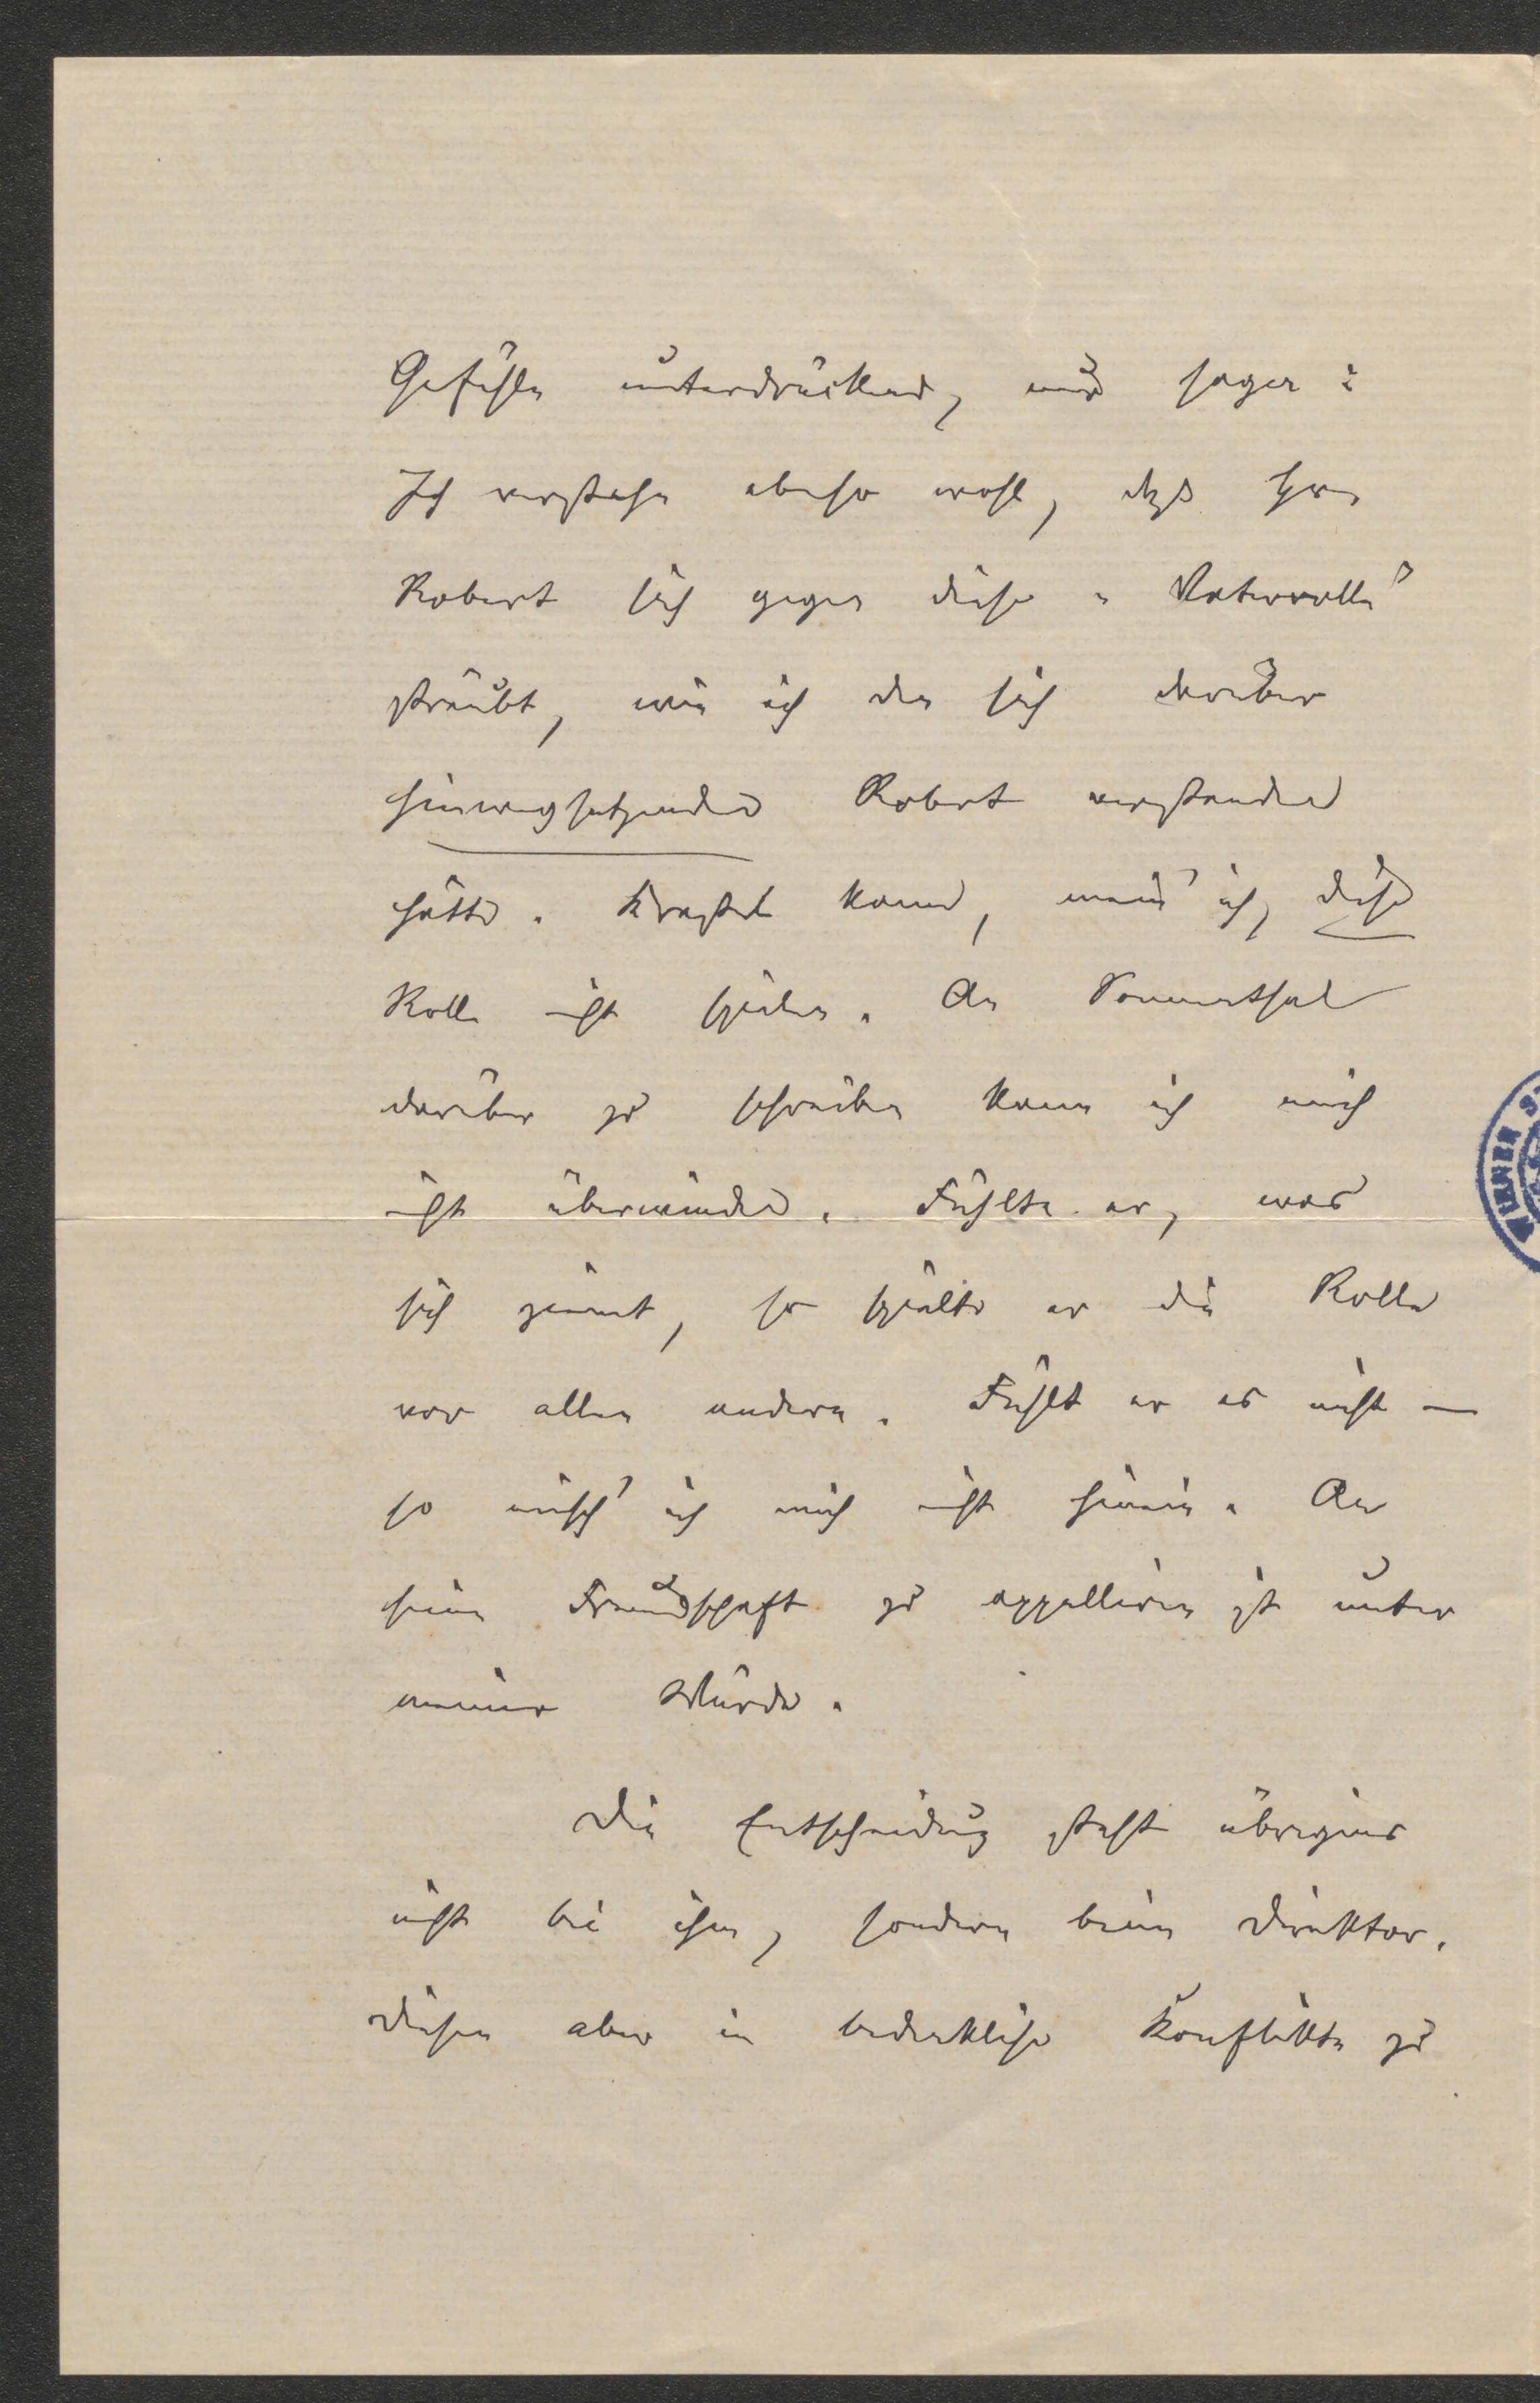 Gefühle unterdrückend, und sagen:
Ich verstehe ebenso wohl, dass Herr
Robert sich gegen diese „Vaterrolle“
sträubt, wie ich den sich darüber
hinwegsetzenden Robert verstanden
hätte. Krastel kann, mein' ich, diese
Rolle nicht spielen. An Sonnenthal
darüber zu schreiben kann ich mich
nicht überwinden. Fühlte er, was
sich ziemt, so spielte er die Rolle
vor allen andern. Fühlt er es nicht —
so misch' ich mich nicht hinein. An
seine Freundschaft zu appelliren ist unter
meiner Würde.
Die Entscheidung steht übrigens
nicht bei ihm, sondern beim Direktor.
Diesen aber in bedenkliche Konflikte zu
WIENER